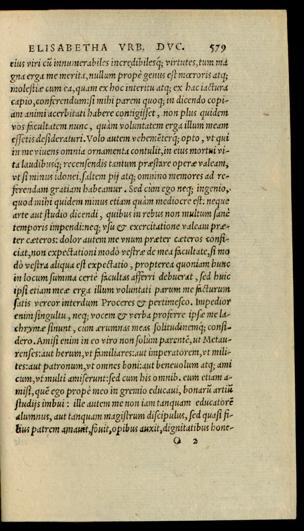 ELISABETHA VRB. DVC. 579
eius viri cũ innumerabiles incredibilesq; virtutes, tum ma
gna erga me merita, nullum propè genus est mœroris atq;
molestiæ cum ea, quam ex hoc interitu atq; ex hac iactura
capio, conferendum: si mihi parem quoq; in dicendo copi-
am animi acerbitati habere contigisset, non plus quidem
vos facultatem nunc, quàm voluntatem erga illum meam
essetis desideraturi. Volo autem vehemēterq; opto, vt qui
in me viuens omnia ornamenta contulit, in eius mortui vi-
ta laudibusq; recensendis tantum præstare operæ valeam,
vt si minus idonei, saltem pij atq; omnino memores ad re-
ferendam gratiam habeamur. Sed cùm ego neq; ingenio,
quod mihi quidem minus etiam quàm mediocre est: neque
arte aut studio dicendi, quibus in rebus non multum sanè
temporis impendi: neq; vsu & exercitatione valeam præ-
ter cæteros: dolor autem me vnum præter cæteros confi-
ciat, non expectationi modò vestræ de mea facultate, si mo
dò vestra aliqua est expectatio, propterea quoniam hunc
in locum summa certè facultas afferri debuerat, sed huic
ipsi etiam meæ erga illum voluntati parum me facturum
satis vereor interdum Proceres & pertimesco. Impedior
enim singultu, neq; vocem & verba proferre ipsæ me la-
chrymæ sinunt, cum ærumnas meas solitudinemq; consi-
dero. Amisi enim in eo viro non solùm parentē, ut Metau-
renses: aut herum, vt familiares: aut imperatorem, vt mili-
tes: aut patronum, vt omnes boni: aut beneuolum atq; ami
cum, vt multi amiserunt: sed cum his omnib. eum etiam a-
misi, quē ego propè meo in gremio educaui, bonarũ artiũ
studijs imbui: ille autem me non iam tanquam educatorē
alumnus, aut tanquam magistrum discipulus, sed quasi fi-
lius patrem amauit, fouit, opibus auxit, dignitatibus hone-
O 2